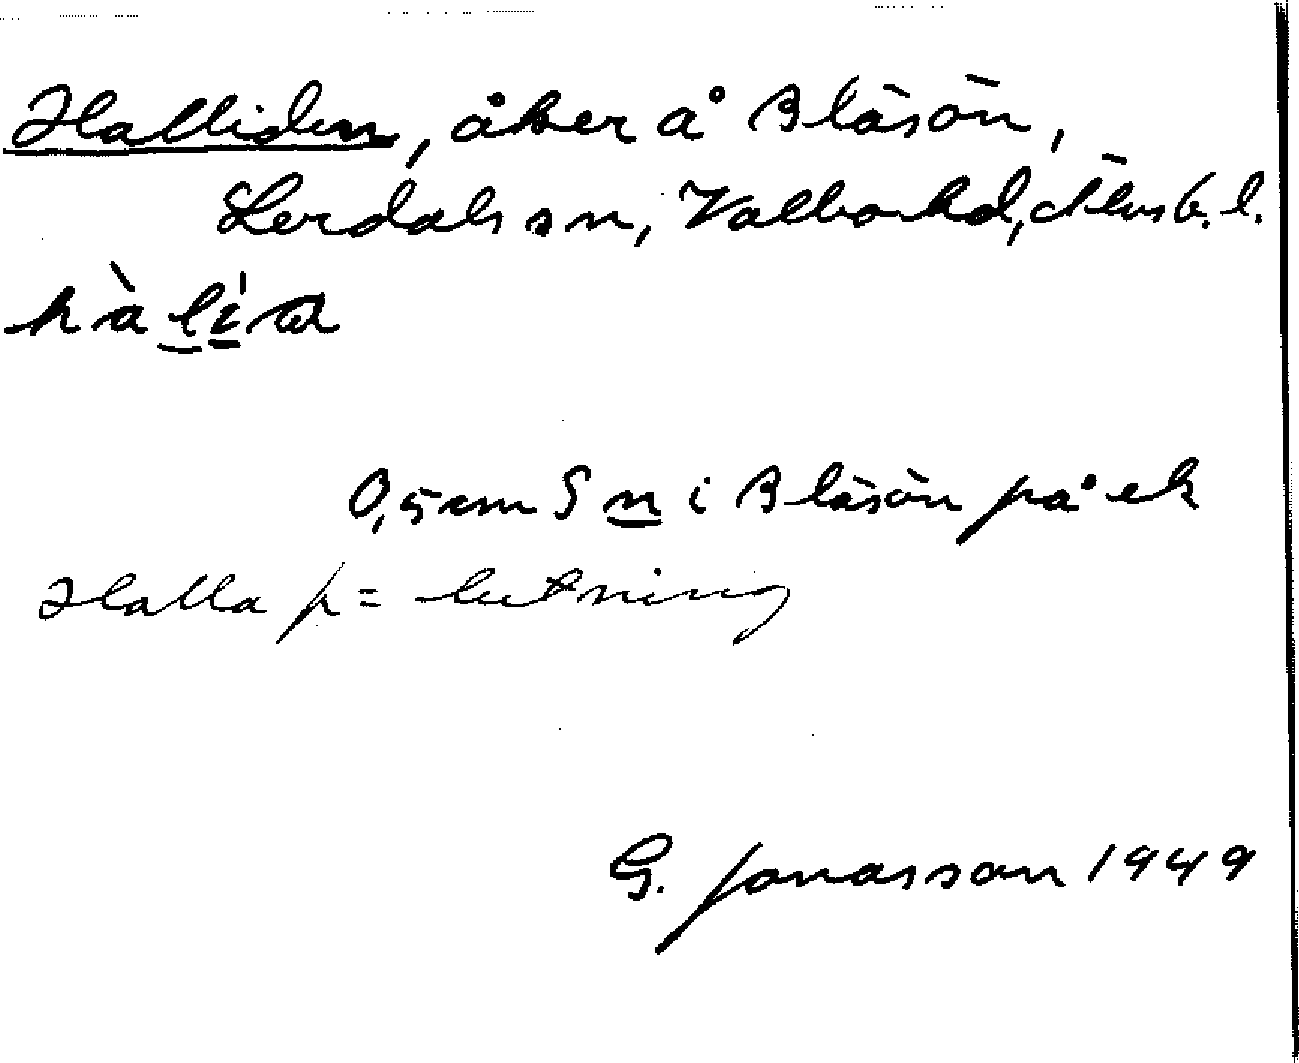 Halliden, åker å Bläsön,
Lerdals sn, Valbo hd, Älvsb. l.
hàlíæ
0,5 cm S n i Bläsön på ek
Halla p = lutning
G. Jonasson 1949